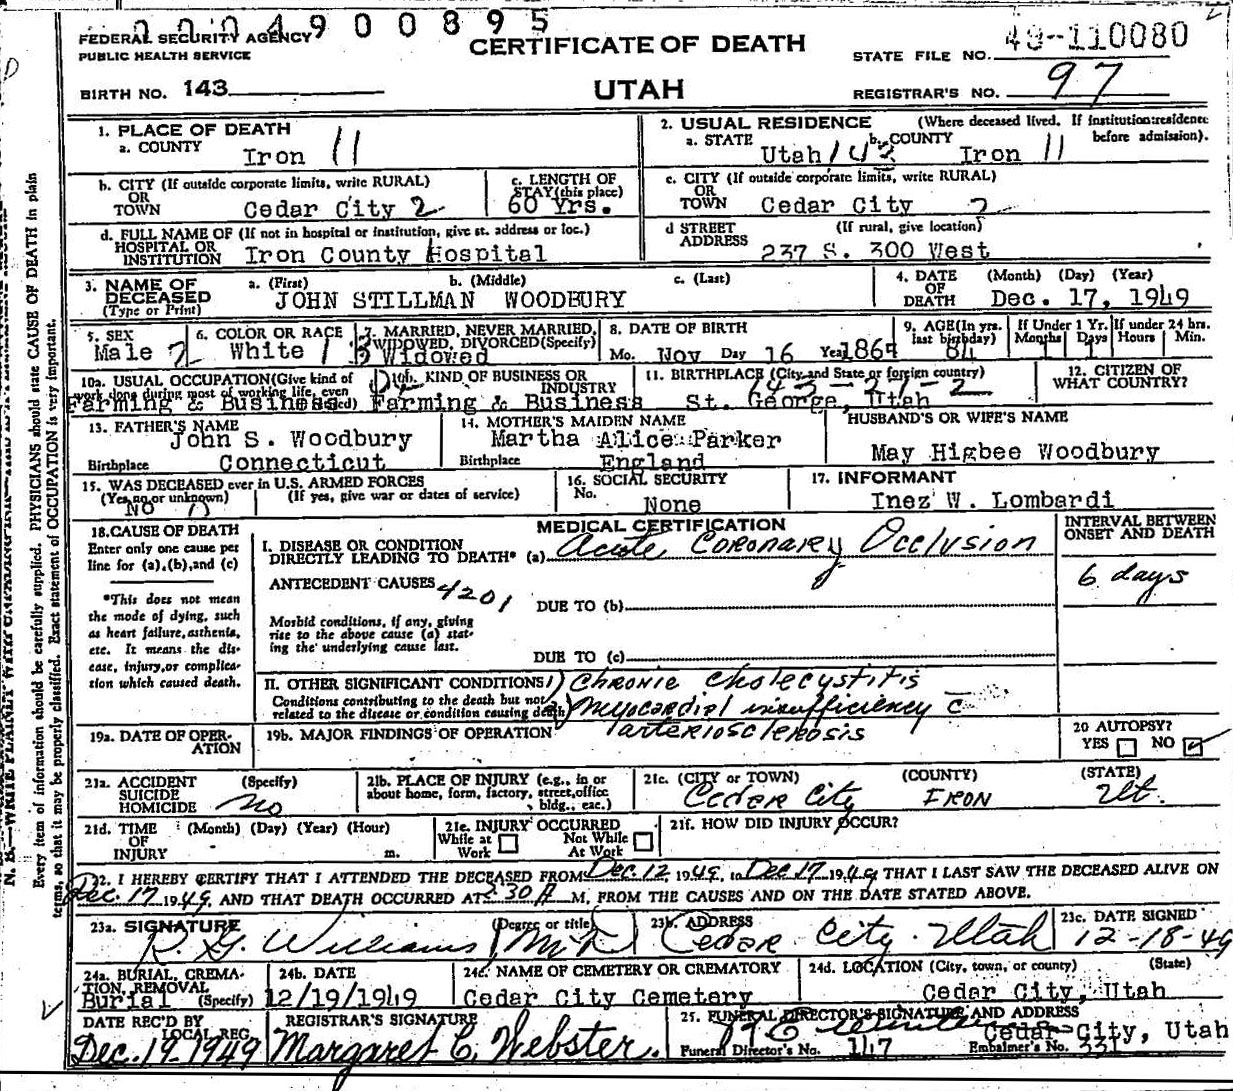 2204900895
FEDERAL SECURITY AGENCY
PUBLIC HEALTH SERVICE
CERTIFICATE OF DEATH
STATE FILE NO. 49-110080
BIRTH NO. 143
UTAH
REGISTRAR'S NO. 97
1. PLACE OF DEATH
a. COUNTY Iron 11
2. USUAL RESIDENCE (Where deceased lived. If institution: residence before admission).
a. STATE Utah 143 b. COUNTY Iron 11
b. CITY (If outside corporate limits, write RURAL)
OR
TOWN Cedar City 2
c. LENGTH OF
STAY (this place)
60 Yrs.
c. CITY (If outside corporate limits, write RURAL)
OR
TOWN Cedar City 2
d. FULL NAME OF (If not in hospital or institution, give st. address or loc.)
HOSPITAL OR
INSTITUTION Iron County Hospital
d STREET (If rural, give location)
ADDRESS 237 S. 300 West
3. NAME OF DECEASED (Type or Print)
a. (First) b. (Middle) c. (Last)
JOHN STILLMAN WOODBURY
4. DATE OF DEATH (Month) (Day) (Year)
Dec. 17, 1949
5. SEX
Male 2
6. COLOR OR RACE
White 1
7. MARRIED, NEVER MARRIED, WIDOWED, DIVORCED (Specify)
3 Widowed
8. DATE OF BIRTH
Mo. Nov Day 16 Year
9. AGE (In yrs. last birthday) 84
If Under 1 Yr. Months 1 Days 1
If under 24 hrs. Hours Min.
10a. USUAL OCCUPATION (Give kind of work done during most of working life, even if retired)
Farming & Business
10b. KIND OF BUSINESS OR INDUSTRY
Farming & Business
11. BIRTHPLACE (City and State or foreign country)
143-27-2
St. George, Utah
12. CITIZEN OF WHAT COUNTRY?
13. FATHER'S NAME
John S. Woodbury
Birthplace Connecticut
14. MOTHER'S MAIDEN NAME
Martha Alice Parker
Birthplace England
HUSBAND'S OR WIFE'S NAME
May Higbee Woodbury
15. WAS DECEASED ever in U.S. ARMED FORCES
(Yes, no or unknown) (If yes, give war or dates of service)
No 0
16. SOCIAL SECURITY
No. None
17. INFORMANT
Inez W. Lombardi
18. CAUSE OF DEATH
Enter only one cause per line for (a), (b), and (c)
*This does not mean the mode of dying, such as heart failure, asthenia, etc. It means the disease, injury, or complication which caused death.
MEDICAL CERTIFICATION
INTERVAL BETWEEN ONSET AND DEATH
I. DISEASE OR CONDITION
DIRECTLY LEADING TO DEATH* (a) Acute Coronary Occlusion
6 days
ANTECEDENT CAUSES 4201
DUE TO (b)
Morbid conditions, if any, giving rise to the above cause (a) stating the underlying cause last.
DUE TO (c)
II. OTHER SIGNIFICANT CONDITIONS 1) Chronic Cholecystitis
Conditions contributing to the death but not related to the disease or condition causing death 2) Myocardial insufficiency c̄
arteriosclerosis
19a. DATE OF OPERATION
19b. MAJOR FINDINGS OF OPERATION
20 AUTOPSY?
YES NO
21a. ACCIDENT (Specify)
SUICIDE
HOMICIDE No
21b. PLACE OF INJURY (e.g., in or about home, form, factory, street, office bldg., eac.)
21c. (CITY or TOWN) (COUNTY) (STATE)
Cedar City IRON Ut.
21d. TIME OF INJURY (Month) (Day) (Year) (Hour) m.
21e. INJURY OCCURRED
While at Work Not While At Work
21f. HOW DID INJURY OCCUR?
22. I HEREBY CERTIFY THAT I ATTENDED THE DECEASED FROM Dec. 12, 1949, to Dec 17 1949 THAT I LAST SAW THE DECEASED ALIVE ON
Dec. 17 1949, AND THAT DEATH OCCURRED AT 2:30 A M, FROM THE CAUSES AND ON THE DATE STATED ABOVE.
23a. SIGNATURE (Degree or title) 23b. ADDRESS 23c. DATE SIGNED
R. G. Williams, M.D. Cedar City, Utah 12-18-49
24a. BURIAL, CREMATION, REMOVAL (Specify)
Burial
24b. DATE
12/19/1949
24c. NAME OF CEMETERY OR CREMATORY
Cedar City Cemetery
24d. LOCATION (City, town, or county) (State)
Cedar City, Utah
DATE REC'D BY LOCAL REG.
Dec. 19-1949
REGISTRAR'S SIGNATURE
Margaret C. Webster.
25. FUNERAL DIRECTOR'S SIGNATURE AND ADDRESS
Cedar City, Utah
Funeral Director's No. 147 Embalmer's No. 331
N. B.—WRITE PLAINLY WITH
Every item of information should be carefully supplied. PHYSICIANS should state CAUSE OF DEATH in plain
terms, so that it may be properly classified. Exact statement of OCCUPATION is very important.